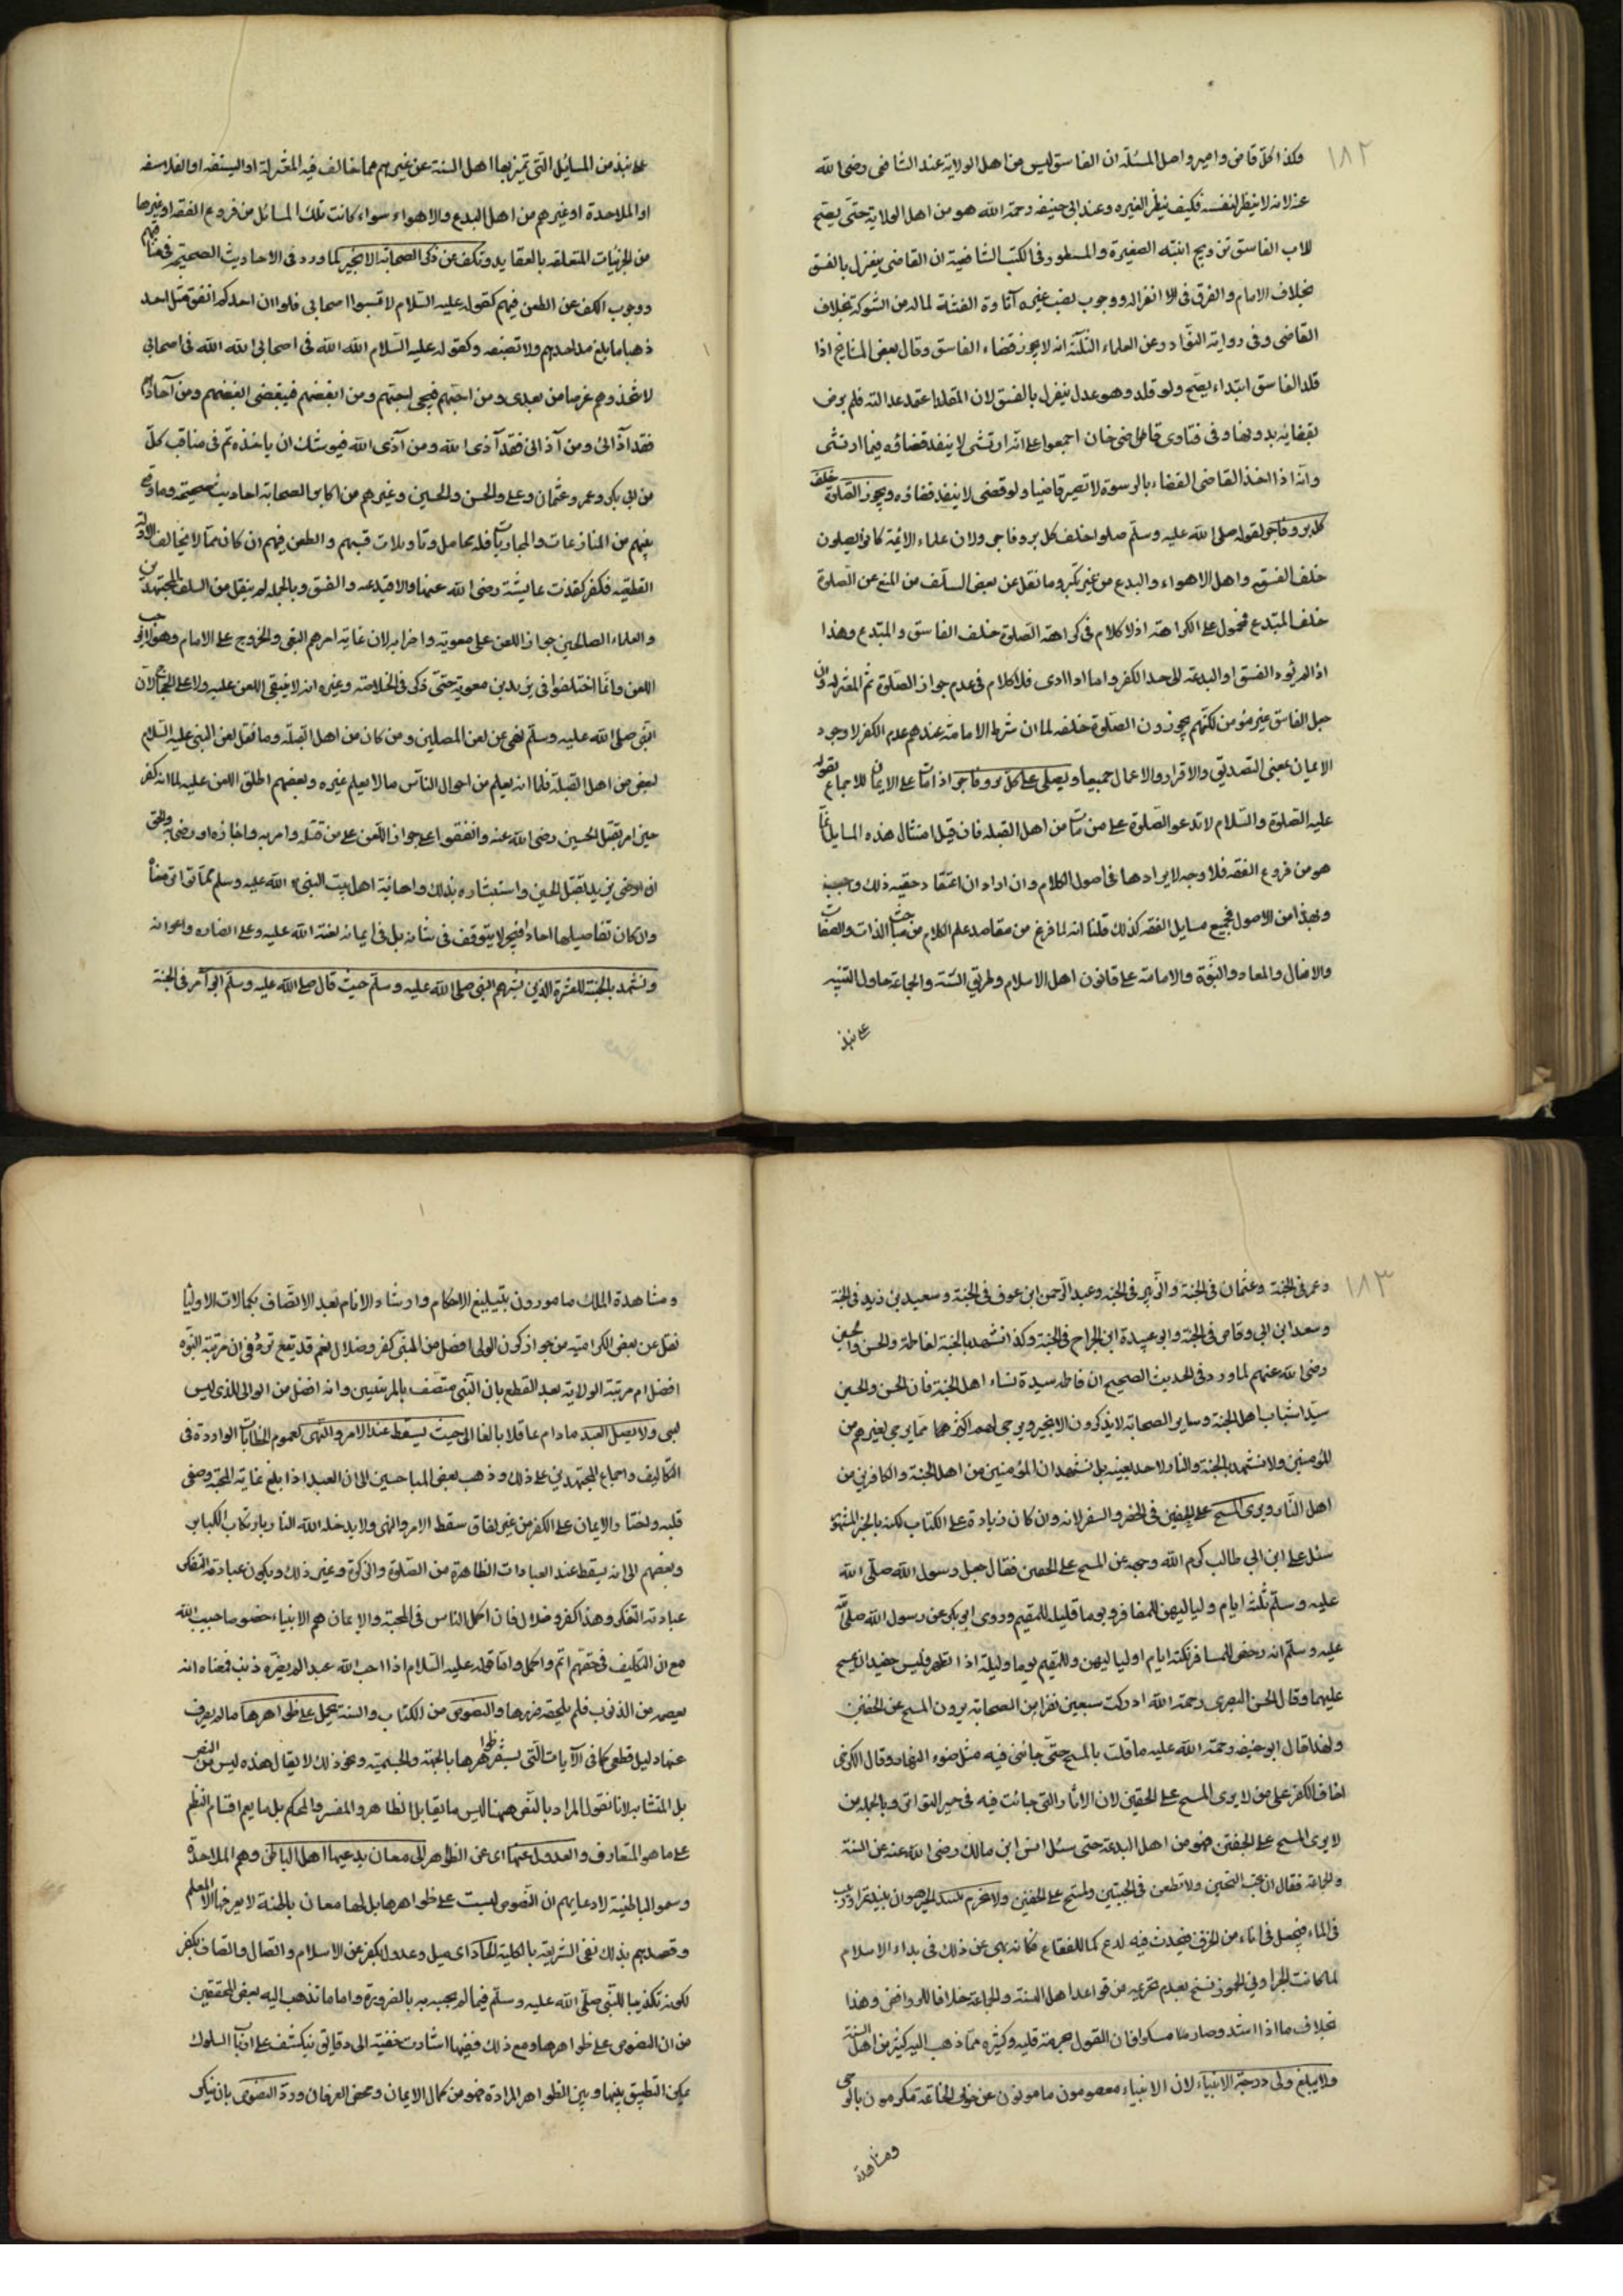 ١٨٢
وكذا كل قاض وامير واصل المسئلة ان الفاسق ليس من اهل الولاية عند الشافعى رضى الله
عنه لانه لا ينظر لنفسه فكيف ينظر لغيره وعند ابى حنيفه رحمة الله هو من اهل الولاية حتى يصح
للاب الفاسق تزويج ابنته الصغيرة والمسطور فى الكتب الشافعية ان القاضى ينعزل بالفسق
بخلاف الامام والفرق فى ان انعزاله ووجوب نصب غيره آثارة الفتنة لما له من الشوكة بخلاف
القاضى وفى رواية النوادر عن العلماء الثلثة انه لا يجوز قضاء الفاسق وقال بعض المشايخ اذا
قلد الفاسق ابتداء يصح ولو قلد وهو عدل ينعزل بالفسق لان المقلد اعتمد عدالته فلم يرض
بقضائه بدونها وفى فتاوى قاضى خان اجمعوا على انه ارتشى لا ينفذ قضاؤه فيما ارتشى
وانه اذا اخذ القاضى القضاء بالرسوة لا تصير قاضيا ولو قضى لا ينفذ قضاؤه ويجوز الصلوة خلف
كل بر وفاجر لقوله صلى الله عليه وسلم صلوا خلف كل بر وفاجر ولان علماء الائمة كانوا يصلون
خلف الفسقه واهل الاهواء والبدع من غير نكير وما نقل عن بعض السلف من المنع عن الصلوة
خلف المبتدع فمحمول على الكراهة اذ لا كلام فى كراهة الصلوة خلف الفاسق والمبتدع وهذا
اذا لم يؤد الفسق او البدعة الى حد الكفر واما اذا ادى فلا كلام فى عدم جواز الصلوة ثم المعتزله وان
جعل الفاسق غير مؤمن لكنهم يجوزون الصلوة خلفه لما ان شرط الامامة عندهم عدم الكفر لا وجود
الايمان بمعنى التصديق والاقرار والاعمال جميعا ويصلى على كل بر وفاجر اذا مات على الايمان للاجماع بقوله
عليه الصلوة والسلام لا تدعو الصلوة على من مات من اهل القبله فان قيل امثال هذه المسايل انما
هو من فروع الفقه فلا وجه لايرادها فى اصول الكلام وان اراد ان اعتقاد حقيه ذلك واجب
وهذا من الاصول فجميع مسايل الفقه كذلك قلنا انه لما فرغ من مقاصد علم الكلام من مباحث الذات والصفات
والافعال والمعاد والنبوة والامامة على قانون اهل الاسلام وطريق السنة والجماعة حاول التنبيه
على نبذ
على نبذ من المسايل التى تميز بها اهل السنة عن غيرهم مما خالف فيه المعتزلة او الشيعه او الفلاسفه
او الملاحدة او غيرهم من اهل البدع والاهواء سواء كانت تلك المسائل من فروع الفقه او غيرها
من الجزئيات المتعلقه بالعقايد ونكف عن ذكر الصحابة الا بخير لما ورد فى الاحاديث الصحيحة فى مناقبهم
ووجوب الكف عن الطعن فيهم كقوله عليه السلام لا تسبوا اصحابى فلو ان احدكم انفق مثل احد
ذهبا ما بلغ مد احدهم ولا نصيفه وكقوله عليه السلام الله الله فى اصحابى الله الله فى اصحابى
لا تتخذوهم غرضا من بعدى ومن احبهم فبحبى احبهم ومن ابغضهم فببغضى ابغضهم ومن آذاهم
فقد آذانى ومن آذانى فقد آذى الله ومن آذى الله فيوشك ان ياخذه ثم فى مناقب كل
من ابى بكر وعمر وعثمان وعلى والحسن والحسين وغيرهم من اكابر الصحابة احاديث صحيحه وما وقع
بينهم من المنازعات والمحاربات فله محامل وتاويلات فسبهم والطعن فيهم ان كان مما لا يخالف الادلة
القطعيه فكفر كقذف عايشة رضى الله عنها والا فبدعه والفسق وبالجمله لم ينقل من السلف المجتهدين
والعلماء الصالحين جواز اللعن على معويه واحزابه لان غاية امرهم البغى والخروج على الامام وهو لا يوجب
اللعن وانما اختلفوا فى يزيد بن معوية حتى ذكر فى الخلاصة وغيره انه لا ينبغى اللعن عليه ولا على الحجاج لان
النبى صلى الله عليه وسلم نهى عن لعن المصلين ومن كان من اهل القبلة وما نقل لعن النبى عليه السلام
لبعض من اهل القبلة فلما انه يعلم من احوال الناس مالا يعلم غيره وبعضهم اطلق اللعن عليه لما انه كفر
حين امر بقتل الحسين رضى الله عنه واتفقوا على جواز اللعن على من قتله وامر به واجازه او رضى به والحق
ان رضى يزيد بقتل الحسين واستبشاره بذلك واهانة اهل بيت النبى الله عليه وسلم مما تواتر معناه
وان كان تفاصيلها احادا فنحن لا يتوقف فى شانه بل فى ايمانه لعنة الله عليه وعلى انصاره واعوانه
ونشهد بالجنة للعشرة الذين بشرهم النبى صلى الله عليه وسلم حيث قال صلى الله عليه وسلم ابو بكر فى الجنة
١٨٣
وعمر فى الجنة وعثمان فى الجنة والزبير فى الجنة وعبد الرحمن ابن عوف فى الجنة وسعيد بن زيد فى الجنة
وسعد ابن ابى وقاص فى الجنة وابو عبيدة ابن الجراح فى الجنة وكذا نشهد بالجنة لفاطمة والحسن والحسين
رضى الله عنهم لما ورد فى الحديث الصحيح ان فاطمه سيدة نساء اهل الجنة فان الحسن والحسين
سيدا شباب اهل الجنة وساير الصحابة لا يذكرون الا بخير ويرجى لهم اكثر مما يرجى لغيرهم من
المؤمنين ولا نشهد بالجنة والنار لاحد بعينه بل نشهد ان المؤمنين من اهل الجنة والكافرين من
اهل النار ويرى المسح على الخفين فى الحضر والسفر لانه وان كان زيادة على الكتاب لكنه بالخبر المشهور
سئل على ابن ابى طالب كرم الله وجهه عن المسح على الخفين فقال جعل رسول الله صلى الله
عليه وسلم ثلثة ايام ولياليهن للمسافر ويوما وليلة للمقيم وروى ابو بكر عن رسول الله صلى الله
عليه وسلم انه رخص للمسافر ثلثة ايام ولياليهن وللمقيم يوما وليلة اذا تطهر فلبس خفيه ان يمسح
عليهما وقال الحسن البصرى رحمة الله ادركت سبعين نفرا من الصحابة يرون المسح عن الخفين
ولهذا قال ابو حنيفه رحمة الله عليه ما قلت بالمسح حتى جائنى فيه مثل ضوء النهار وقال الكرخى
اخاف الكفر على من لا يرى المسح على الخفين لان الاثار التى جائت فيه فى حيز التواتر وبالجمله من
لا يرى المسح على الخفين فهو من اهل البدعة حتى سئل انس ابن مالك رضى الله عنه عن السنة
والجماعة فقال ان تحب الشيخين ولا تطعن فى الختنين وتمسح على الخفين ولا نحرم نبيذ وهو ان ينبذ تمر او زبيب
فى الماء فيجعل فى اناء من الخزف فيحدث فيه لدع كما للفقاع فكانه نهى عن ذلك فى بداء الاسلام
لما كانت الجرار وانى الخمور ثم نسخ فعدم تحريمه من قواعد اهل السنة والجماعة خلافا للروافض وهذا
بخلاف ما اذا اشتد وصار مسكرا فان القول بحرمة قليله وكثيره مما ذهب اليه كثير من اهل السنة
ولا يبلغ ولى درجة الانبياء لان الانبياء معصومون مامونون عن خوف الخاتمة مكرمون بالوحى
ومشاهدة
ومشاهدة الملك مامورون بتبليغ الاحكام وارشاد الانام بعد الاتصاف بكمالات الاوليا
نقل عن بعض الكرامية من جواز كون الولى افضل من النبى كفر وضلال نعم قد يقع تردد فى ان مرتبة النبوه
افضل ام مرتبة الولاية بعد القطع بان النبى متصف بالمرتبتين وانه افضل من الولى الذى ليس
نبى ولا يصل العبد مادام عاقلا بالغا الى حيث يسقط عنه الامر والنهى لعموم الخطابات الواردة فى
التكاليف واجماع المجتهدين على ذلك وذهب بعض المباحيين الى ان العبد اذا بلغ غاية المحبة وصفى
قلبه واختار الايمان على الكفر من غير نفاق سقط الامر والنهى ولا يدخله الله النار بارتكاب الكباير
وبعضهم الى انه يسقط عنه العبادات الظاهرة من الصلوة والزكوة وغير ذلك ويكون عبادته التفكر
عبادته التفكر وهذا كفر وضلال فان اكمل الناس فى المحبة والايمان هم الانبياء خصوصا حبيب الله
مع ان التكليف فى حقهم اتم واكمل واما قوله عليه السلام اذا احب الله عبدا لم يضره ذنب فمعناه انه
يعصمه من الذنوب فلم يلحقه ضررها والنصوص من الكتاب والسنة يحمل على ظواهرها مالم يصرف
عنها دليل قطعى كما فى الآيات التى يشعر ظواهرها بالجهة والجسمية ونحو ذلك لا يقال هذه ليس من النص
بل المتشابه لانا نقول المراد بالنص ههنا ليس ما يقابل الظاهر والمفسر والمحكم بل ما يعم اقسام النظم
على ما هو المتعارف والعدول عنها اى عن الظواهر الى معان يدعيها اهل الباطن وهم الملاحدة
وسموا الباطنية لادعايهم ان النصوص ليست على ظواهرها بل لها معان باطنة لا يعرفها الا المعلم
وقصدهم بذلك نفى الشريعة بالكلية الحاد اى ميل وعدول بكفر عن الاسلام واتصال واتصاف بكفر
لكونه تكذيبا للنبى صلى الله عليه وسلم فيما لم يجيبه به بالضرورة واما ما تذهب اليه بعض المحققين
من ان النصوص على ظواهرها ومع ذلك ففيها اشارت خفية الى دقايق ينكشف على ارباب السلوك
يمكن التطبيق بينها وبين الظواهر المرادة فهو من كمال الايمان ومحض العرفان ورد النصوص بان ينكر